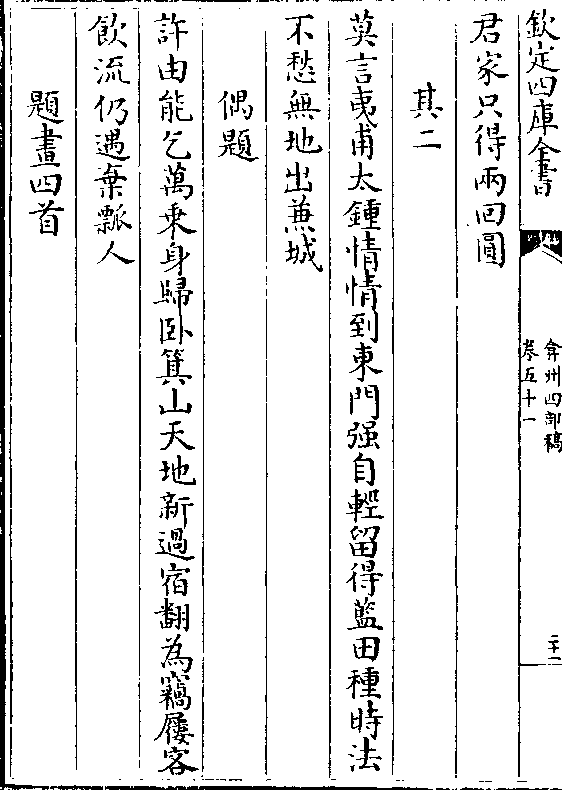 欽定四庫全書
弇州四部稿
卷五十一
二十一
君家只得兩回圓
其二
莫言夷甫太鍾情情到東門强自輕留得藍田種時法
不愁無地出蒹城
偶題
許由能乞萬乘身歸卧箕山天地新過宿翻為竊屨客
飲流仍遇棄瓢人
題畫四首